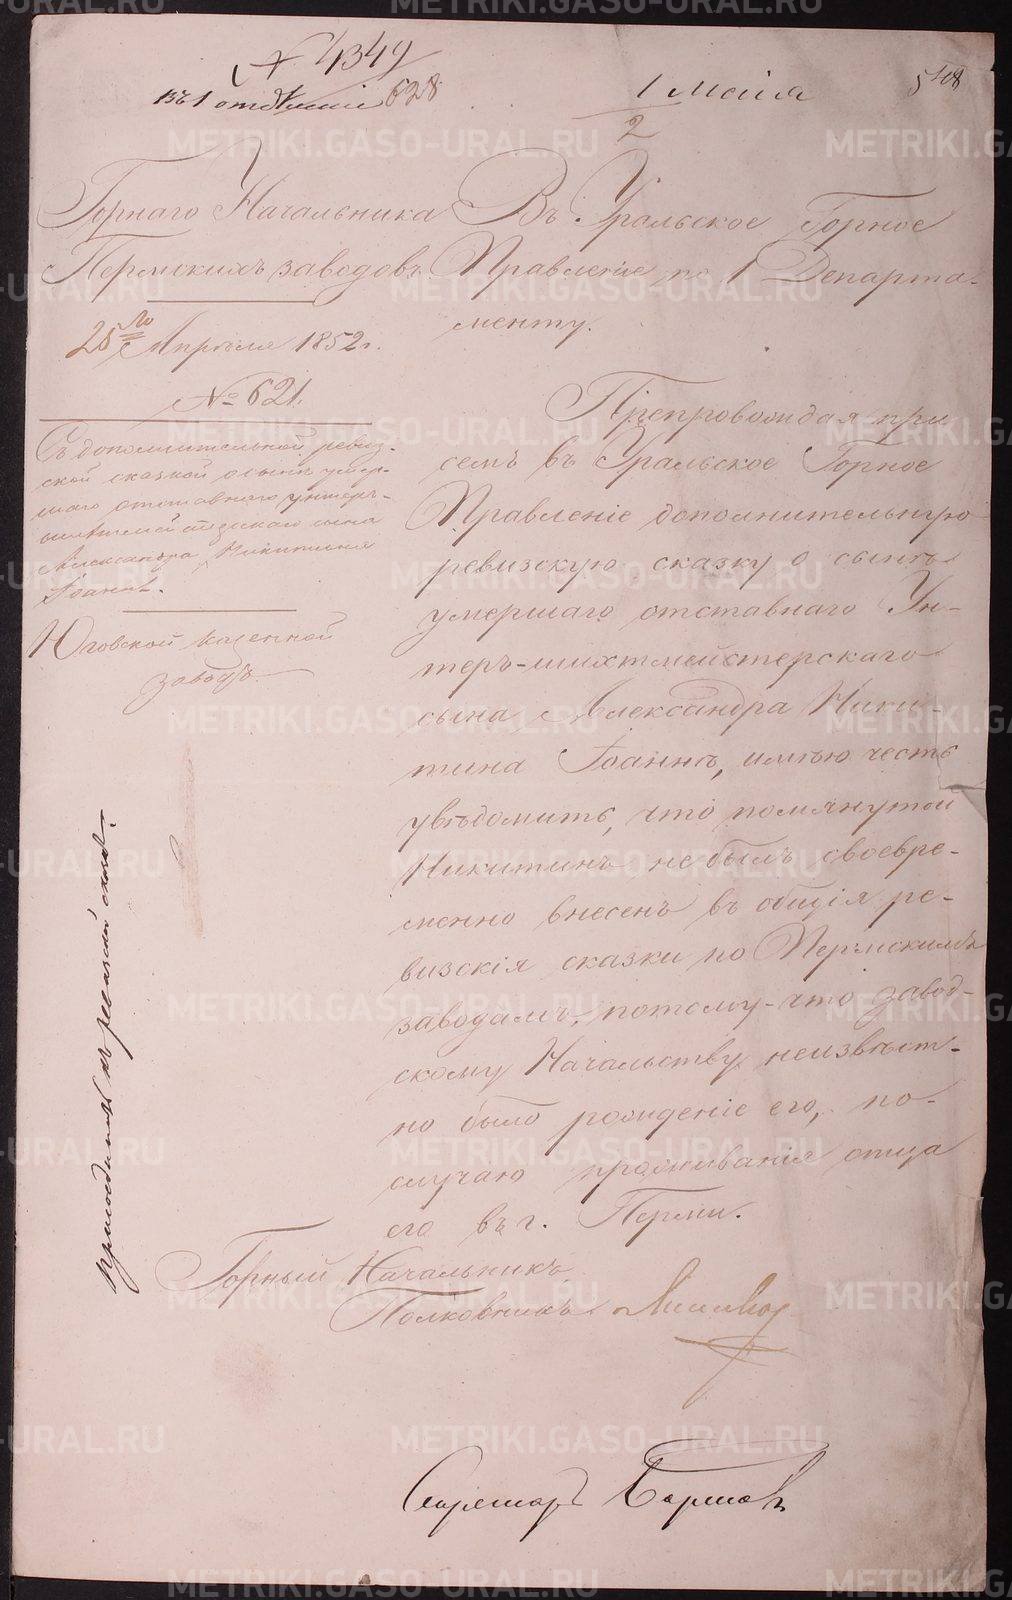 № 4349
въ 1 отдѣленіе 628
1 Маія
2
508
Горнаго Начальника
Пермскихъ заводовъ
25го Апрѣля 1852 г.
№ 621.
Съ дополнительной ревиз-
ской сказкой о сынѣ умер-
шаго отставнаго унтеръ-
шихтмейстерскаго сына
Александра Никитина
Іоаннѣ.
Юговской казенной
заводъ.
Въ Уральское Горное
Правленіе по 1 Департа-
менту.
Препровождая при
семъ въ Уральское Горное
Правленіе дополнительную
ревизскую сказку о сынѣ
умершаго отставнаго Ун-
теръ-шихтмейстерскаго
сына Александра Ники-
тина Іоаннѣ, имѣю честь
увѣдомить, что помянутой
Никитинъ не былъ своевре-
менно внесенъ въ общія ре-
визскія сказки по Пермскимъ
заводамъ, потому-что завод-
скому Начальству неизвѣст-
но было рожденіе его, по-
случаю проживанія отца
его въ г. Перми.
Горный Начальникъ
Полковникъ
Секретарь
къ ревизской сказкѣ.
METRIKI.GASO-URAL.RU